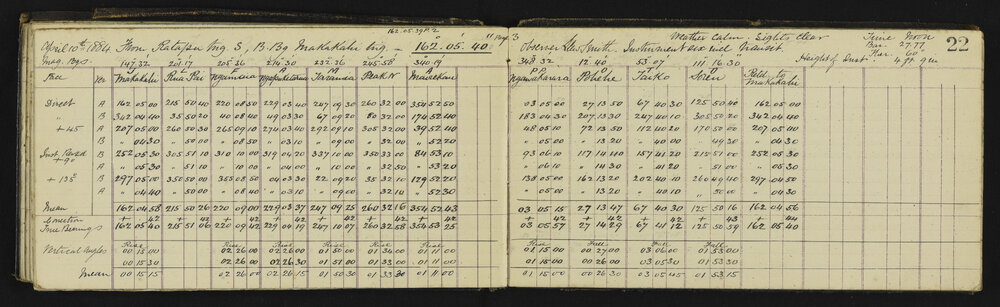 162.05.39 P.2
April 10th 1884. From Ratapu Trig S, B. Bg Makakahi trig. — 162° 05' 40" Page 3 Weather Calm. Lights Clear Time Noon 22
Observer Jas Smith. Instrument six inch Transit. Bar. 27.77
Ther. 60°
Mag. Bgs. 147.32 201.17 205.36 214.30 232.36 245.58 340.19 348.32 12.40 53.07 111.16.30 Height of Inst. 4 ft 9 in
Face Ver Makakahi Rua Pai Makakahi
Direct A 162 05 00 215 50 40 220 08 50 229 03 40 247 09 30 260 32 00 354 52 50 03 05 00 27 13 50 67 40 30 125 50 40 162 05 00
" B 342 04 40 35 50 20 40 08 40 49 03 30 67 09 20 80 32 00 174 52 40 183 04 30 207 13 30 247 40 10 305 50 20 342 04 40
+ 45 A 207 05 00 260 50 30 265 09 10 274 03 40 292 09 10 305 32 00 39 52 40 48 05 10 72 13 50 112 40 20 170 50 00 207 05 00
B " 04 30 " 50 00 " 08 50 " 03 10 " 09 00 " 32 00 " 52 20 " 05 00 " 13 20 " 40 00 " 49 30 " 04 30
Inst. Revsd + 90 B 252 05 30 305 51 10 310 10 00 319 04 20 337 10 00 350 33 00 84 53 10 93 06 10 117 14 40 157 41 20 215 51 00 252 05 30
A " 05 30 " 51 10 " 10 00 " 04 00 " 10 00 " 32 50 " 53 20 " 06 10 " 14 30 " 41 20 " 51 00 " 05 30
+ 135° B 297 05 00 350 50 00 355 08 50 04 03 30 22 09 20 35 32 10 129 52 20 138 05 00 162 13 20 202 40 10 260 49 40 297 04 50
A " 04 40 " 50 10 " 08 40 " 03 10 " 09 00 " 32 00 " 52 30 " 05 00 " 13 20 " 40 10 " 50 00 " 04 30
Mean 162 04 58 215 50 26 220 09 00 229 03 37 247 09 25 260 32 16 354 52 43 03 05 15 27 13 47 67 40 30 125 50 16 162 04 56
Correction + 42 + 42 + 42 + 42 + 42 + 42 + 42 + 42 + 42 + 42 + 43 + 44
True Bearings 162 05 40 215 51 06 220 09 42 229 04 19 247 10 07 260 32 58 354 53 25 03 05 57 27 14 29 67 41 12 125 50 59 162 05 40
Rise Rise Rise Rise Rise Rise Rise Fall Fall Rise
Vertical Angles 00 15 00 02 26 00 02 26 00 01 50 00 01 34 00 01 11 00 01 15 00 00 27 00 03 06 00 01 53 00
00 15 30 02 26 00 02 26 30 01 51 00 01 33 00 01 11 00 01 15 00 00 26 00 03 05 30 01 53 30
Mean 00 15 15 02 26 00 02 26 15 01 50 30 01 33 30 01 11 00 01 15 00 00 26 30 03 05 45 01 53 15